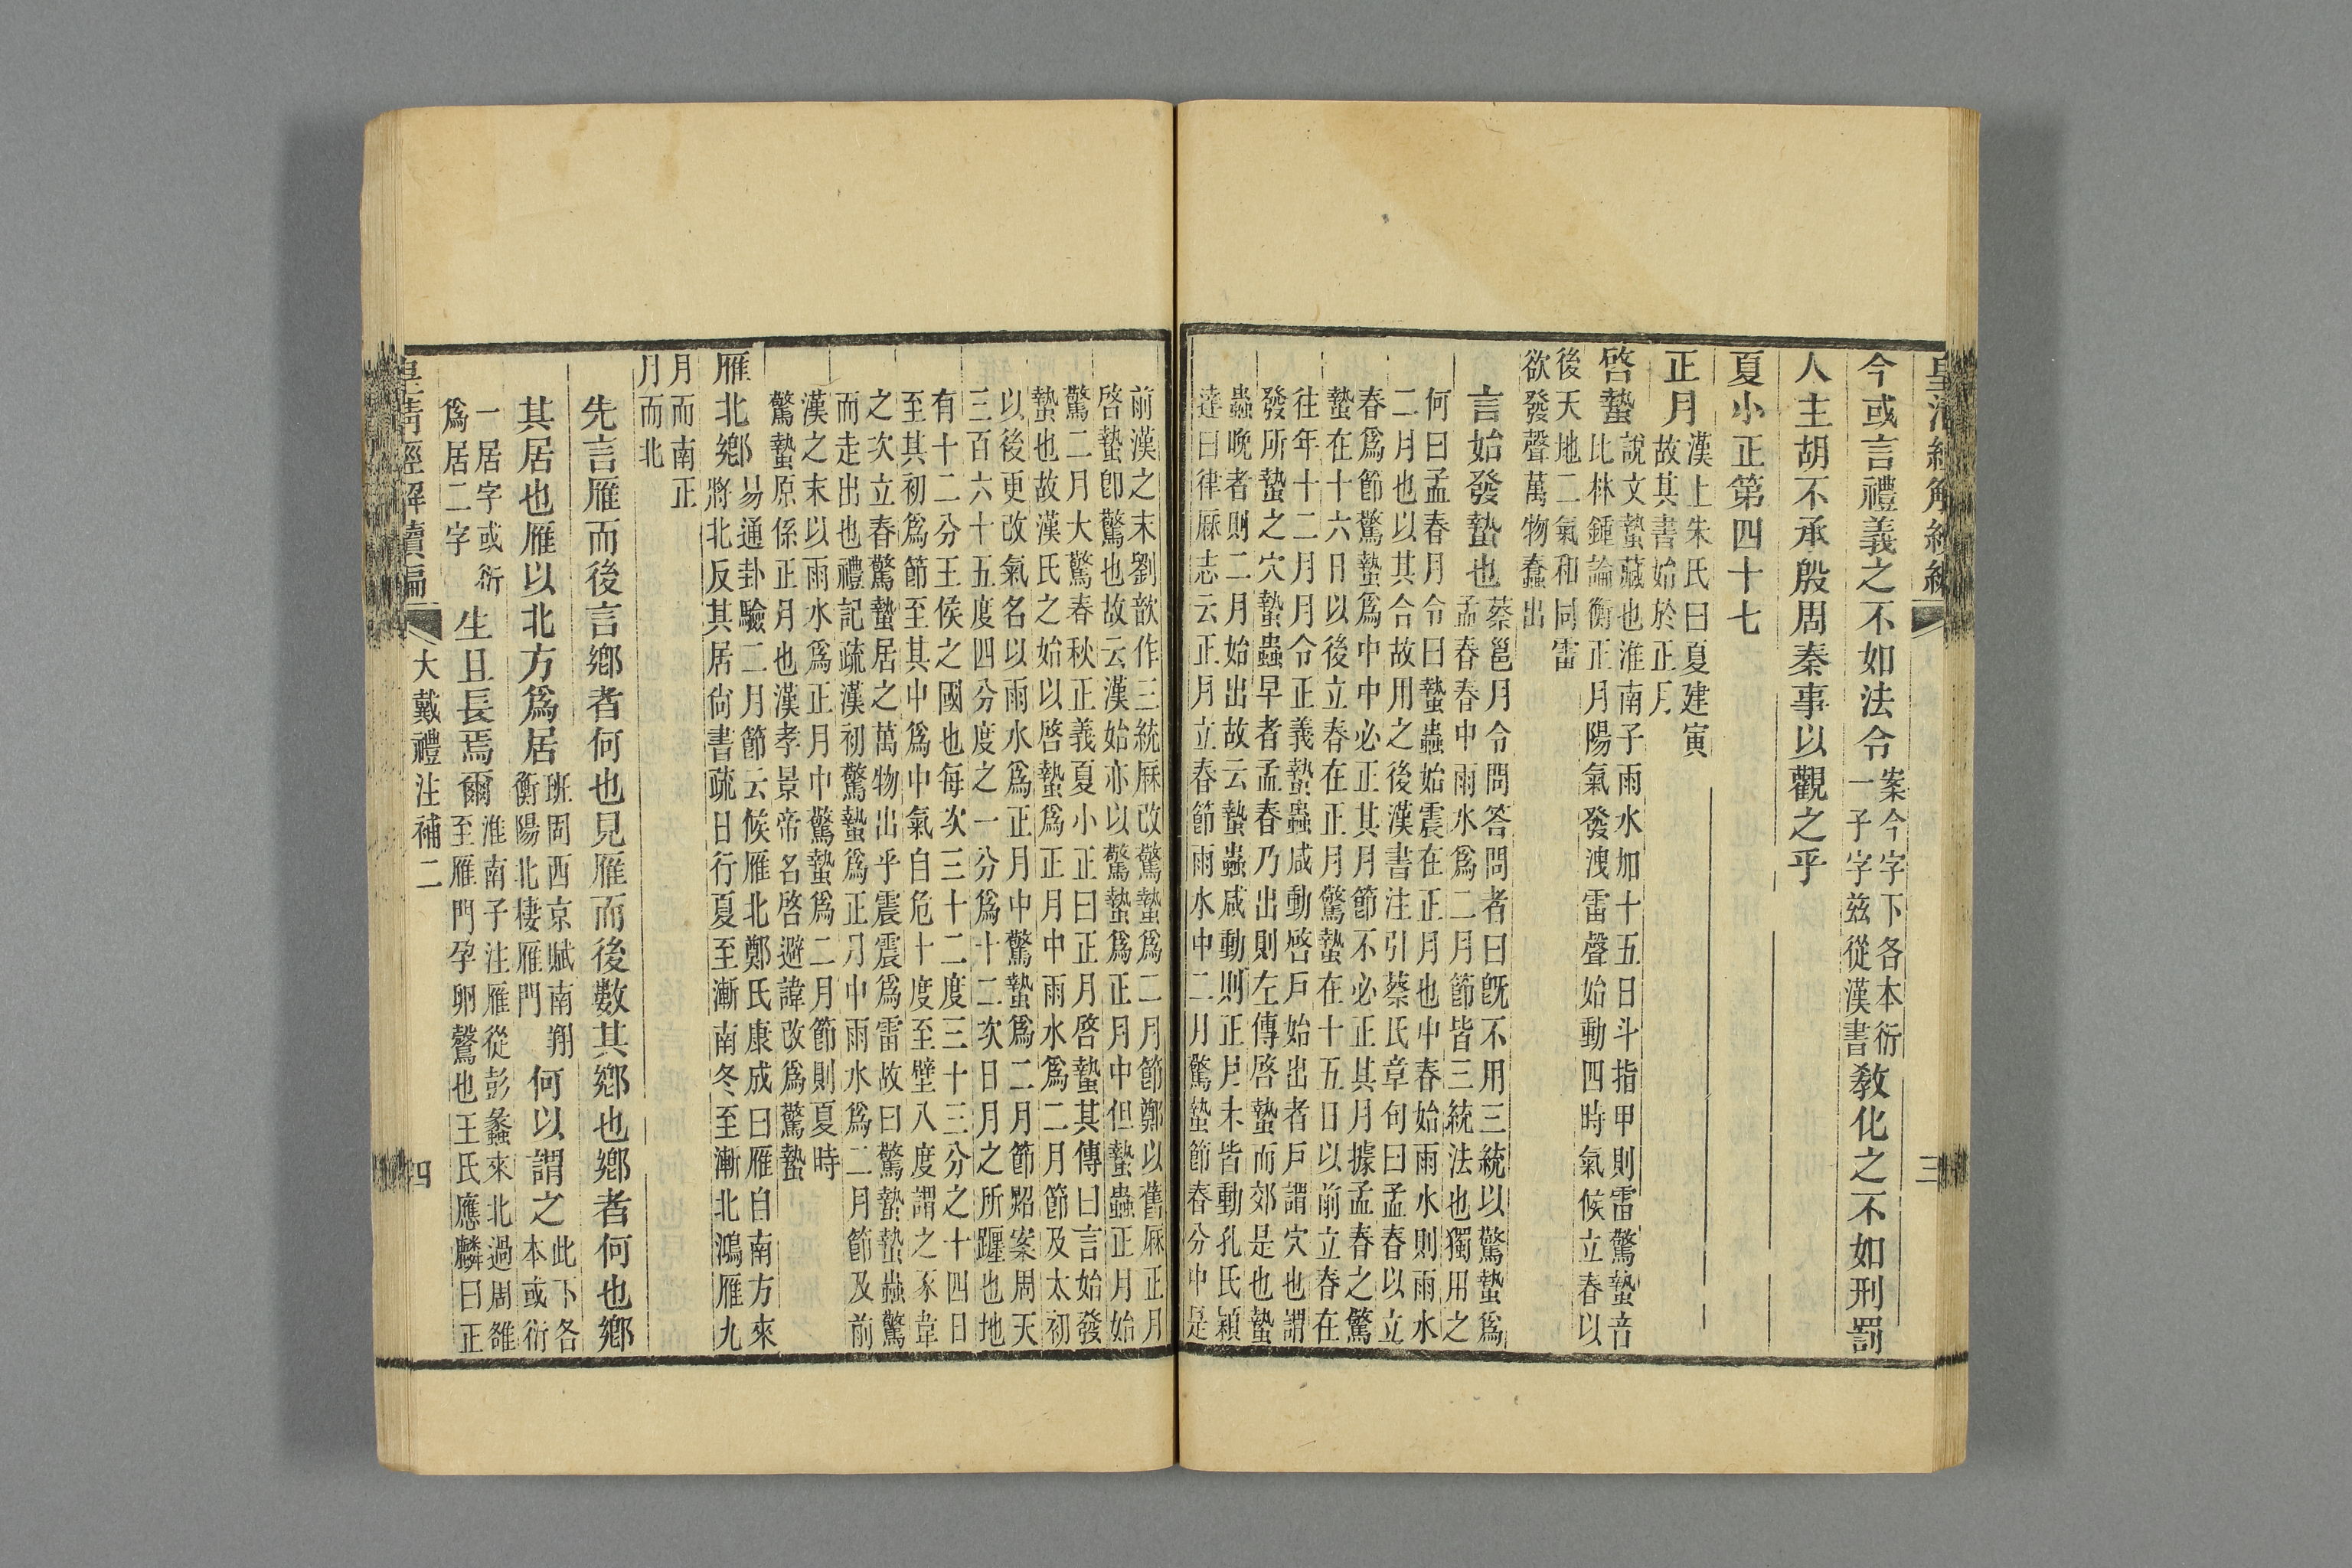 皇清經解續編
三
今或言禮義之不如法令案今字下各本衍一子字兹從漢書敎化之不如刑罰
人主胡不承殷周秦事以觀之乎
夏小正第四十七
正月漢上朱氏曰夏建寅故其書始於正月
啓蟄說文蟄藏也淮南子雨水加十五日斗指甲則雷驚蟄音比林鍾論衡正月陽氣發洩雷聲始動四時氣候立春以
後天地二氣和同雷欲發聲萬物蠢出
言始發蟄也蔡邕月令問答問者曰旣不用三統以驚蟄爲孟春春中雨水爲二月節皆三統法也獨用之
何曰孟春月令曰蟄蟲始震在正月也中春始雨水則雨水二月也以其合故用之後漢書注引蔡氏章句曰孟春以立
春爲節驚蟄爲中中必正其月節不必正其月據孟春之驚蟄在十六日以後立春在正月驚蟄在十五日以前立春在
往年十二月月令正義蟄蟲咸動啓戶始出者戶謂穴也謂發所蟄之穴蟄蟲早者孟春乃出則左傳啓蟄而郊是也蟄
蟲晚者則二月始出故云蟄蟲咸動則正月未皆動孔氏穎達曰律厤志云正月立春節雨水中二月驚蟄節春分中是
前漢之末劉歆作三統厤改驚蟄爲二月節鄭以舊厤正月啓蟄卽驚也故云漢始亦以驚蟄爲正月中但蟄蟲正月始
驚二月大驚春秋正義夏小正曰正月啓蟄其傳曰言始發蟄也故漢氏之始以啓蟄爲正月中雨水爲二月節及太初
以後更改氣名以雨水爲正月中驚蟄爲二月節炤案周天三百六十五度四分度之一分爲十二次日月之所躔也地
有十二分王侯之國也每次三十二度三十三分之十四日至其初爲節至其中爲中氣自危十度至壁八度謂之豕韋
之次立春驚蟄居之萬物出乎震震爲雷故曰驚蟄蟄蟲驚而走出也禮記疏漢初驚蟄爲正月中雨水爲二月節及前
漢之末以雨水爲正月中驚蟄爲二月節則夏時驚蟄原係正月也漢孝景帝名啓避諱改爲驚蟄
雁北鄉易通卦驗二月節云候雁北鄭氏康成曰雁自南方來將北反其居尙書疏日行夏至漸南冬至漸北鴻雁九
月而南正月而北
先言雁而後言鄉者何也見雁而後數其鄉也鄉者何也鄉
其居也雁以北方爲居班固西京賦南翔衡陽北棲雁門何以謂之此下各本或衍
一居字或衍爲居二字生且長焉爾淮南子注雁從彭蠡來北過周雒至雁門孕卵鷇也王氏應麟曰正
皇淸經解續編
大戴禮注補二
四